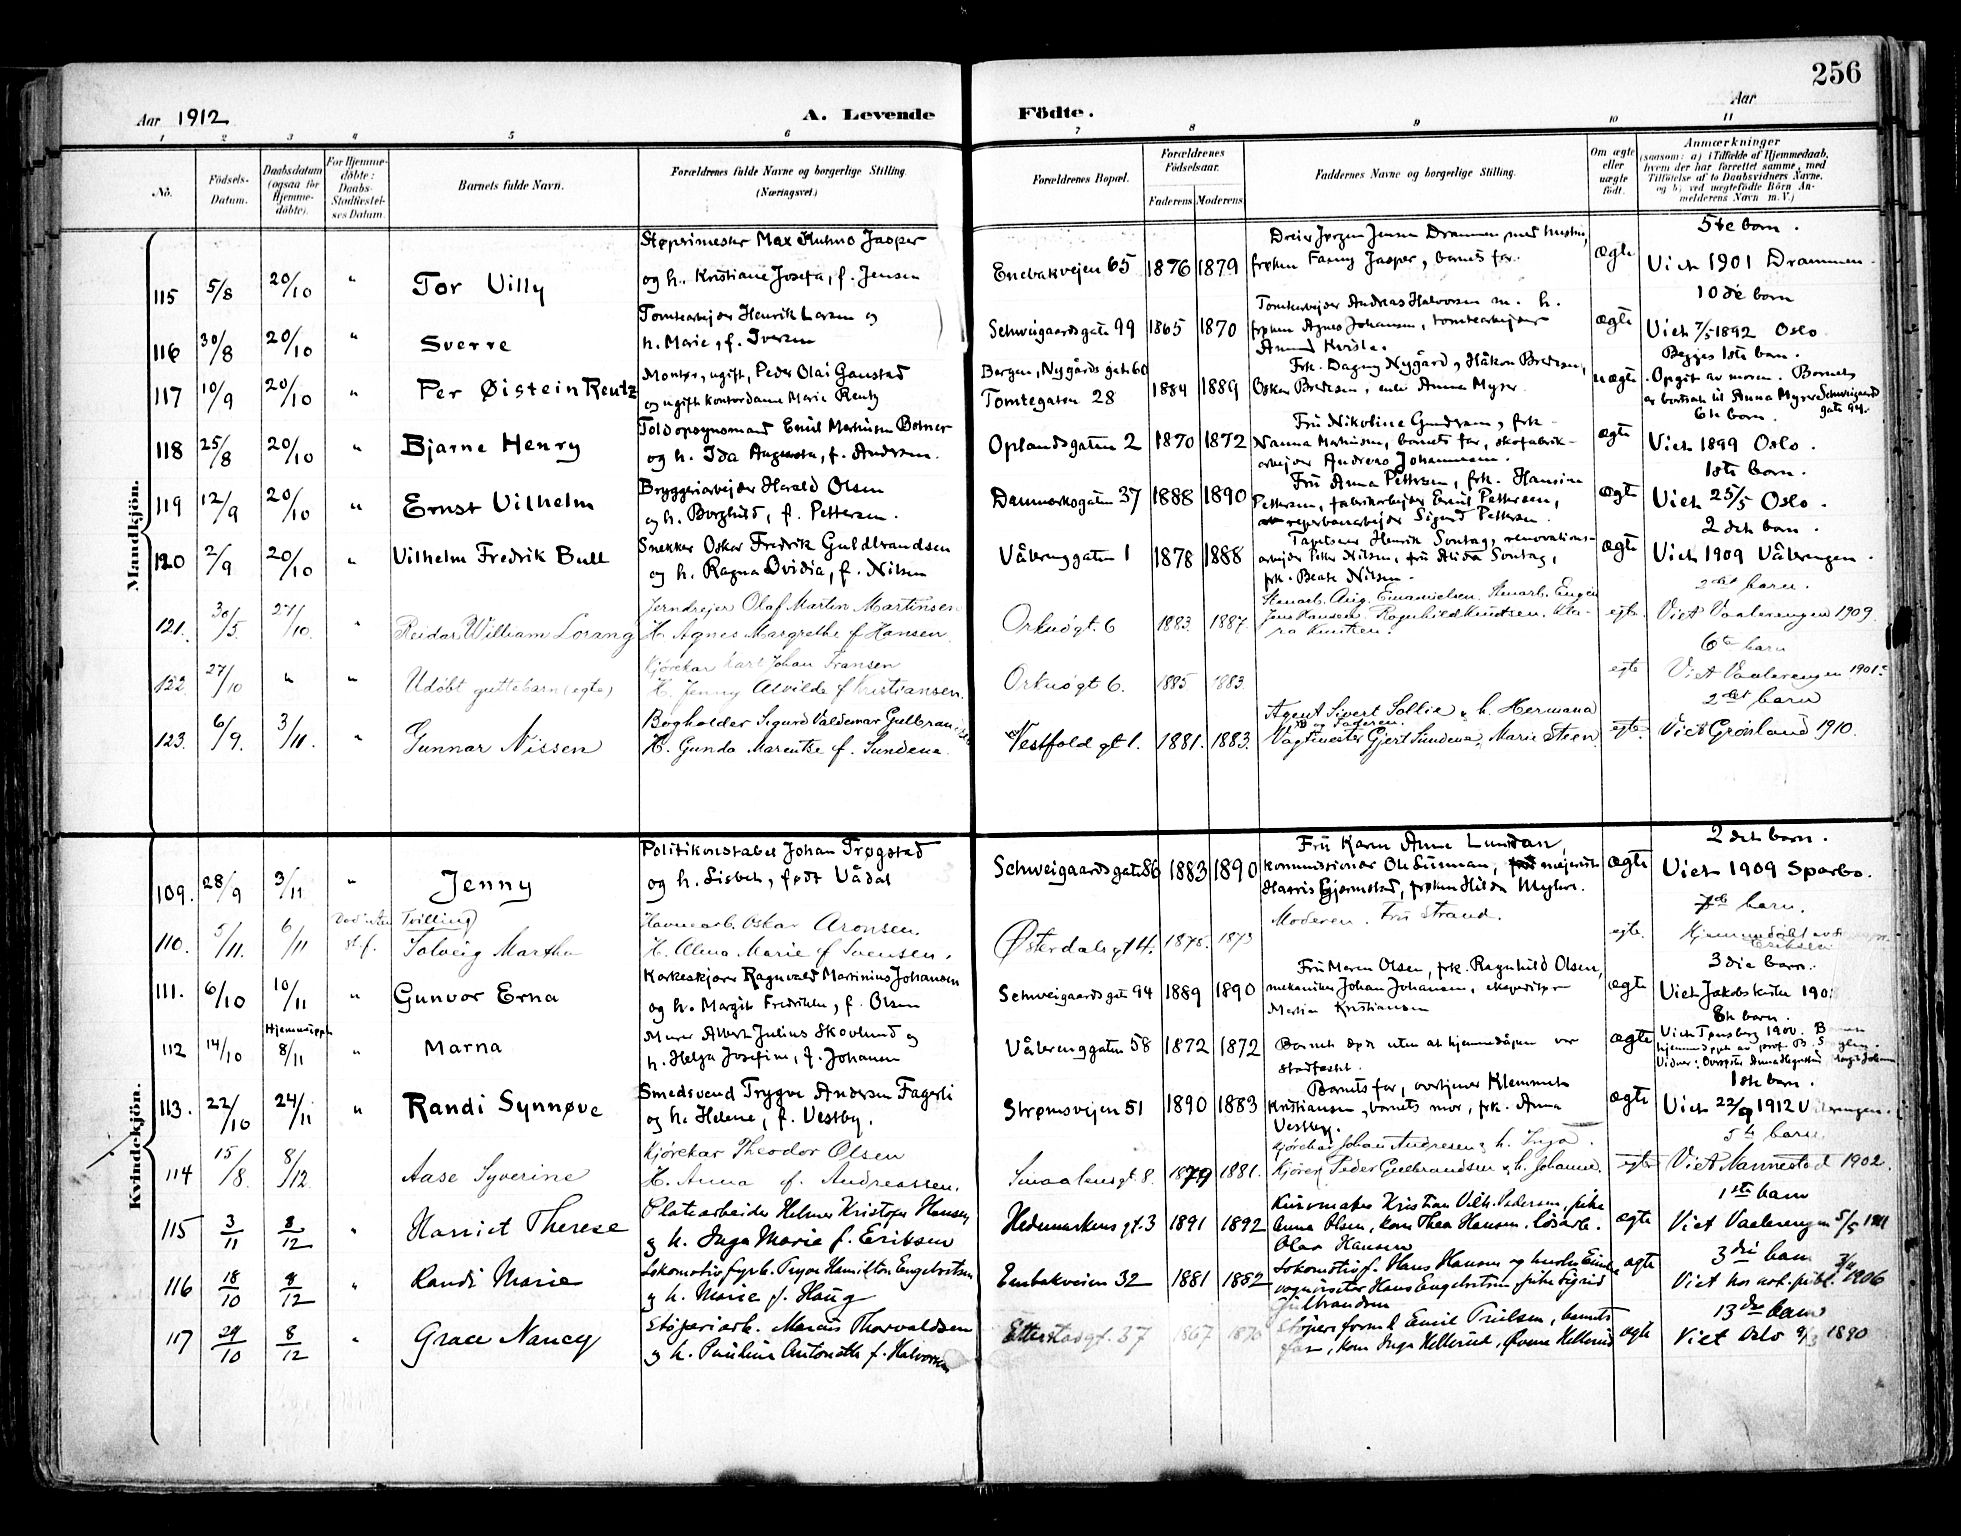 256
Aar 1912
A. Levende
Födte.
Aar
1 2 3 4 5 6 7 8 9 10 11
No.
Födsels-
Datum.
Daabsdatum
(ogsaa for
Hjemme-
döbte).
For Hjemme-
döbte:
Daabs-
Stadfæstel-
ses Datum.
Barnets fulde Navn.
Forældrenes fulde Navne og borgerlige Stilling.
(Næringsvei.)
Forældrenes Bopæl.
Forældrenes
Födselsaar.
Faderens Moderens
Faddernes Navne og borgerlige Stilling.
Om ægte
eller
uægte
födt.
Anmærkninger
(saasom: a) i Tilfælde af Hjemmedaab,
hvem der har forrettet samme, med
Tilföielse af to Daabsvidners Navne,
og b) ved uægtefödte Börn An-
melderens Navn m. V.)
Mandkjön.
115 5/8 20/10 " Tor Villy
Støperimester Max Kuhno Jasper
og h. Kristiane Josefa, f. Jensen
Enebakveien 65 1876 1879
Dreier Jørgen Jensen Drammen med hustru,
frøken Fanny Jasper, barnets far.
ægte
5te barn.
Viet 1901 Drammen.
116 30/8 20/10 " Sverre
Tomtearbejder Henrik Larsen og
h. Marie, f. Iversen
Schweigaardsgaten 99 1865 1870
Tomtearbejder Andreas Halvorsen m. h.
frøken Agnes Johansen, tomtearbejder
Amund Kvisla.
ægte
10de barn
Viet 7/5 1892 Oslo
117 10/9 20/10 " Per Øistein Reutz
Montør, ugift, Peder Olai Ganstad
og ugift kontordame Marie Reutz
Bergen, Nygårds gate 60
Tomtegaten 28 1884 1889
Frk. Dagny Nygård, Håkon Bredesen,
Oskar Bredesen, enke Anna Myrer
uægte
Begges 1ste barn.
Opgit av moren. Barnet
er bortsat til Anna Myrer Schweigaards
gate 94.
118 25/8 20/10 " Bjarne Henry
Toldopsynsmand Emil Martinsen Botner
og h. Ida Augusta, f. Andersen.
Oplandsgaten 2 1870 1872
Fru Nikoline Gundersen, frk.
Nanna Martinsen, barnets far, skofabrik-
arbejder Andreas Johannesen.
ægte
6te barn.
Viet 1899 Oslo.
119 12/9 20/10 " Ernst Vilhelm
Bryggeriarbejder Harald Olsen
og h. Borghild, f. Pettersen.
Danmarksgaten 37 1888 1890
Fru Anna Pettersen, frk. Hansine
Pettersen, fabrikarbejder Emil Pettersen,
reperbanarbejder Sigurd Pettersen.
ægte
1ste barn.
Viet 25/5 Oslo.
120 2/9 20/10 " Vilhelm Fredrik Bull
Snekker Oskar Fredrik Guldbrandsen
og h. Ragna Ovidia, f. Nilsen
Vålerenggaten 1 1878 1888
Tapetserer Henrik Sontag, renovations-
arbejder Peter Nilsen, fru Alida Sontag,
frk. Beate Nilsen.
ægte
2det barn.
Viet 1909 Vålerengen.
121. 30/5. 27/10. " Reidar William Lorang
Jerndrejer Olaf Martin Martinsen
H. Agnes Margrethe f Hansen.
Orknögt. 6 1883. 1887.
Stenarb. Aug. Emanuelsen. Stenarb. Eugen
Jens Hansen. Ragnhild Knutsen. Kla-
ra Knutsen.
egte.
2det barn.
Viet Vaalerengen 1909.
122. 27/10 " " Udöbt guttebarn (egte)
Kjörekar Karl Johan Fransen
H. Jenny Alvilde f Kristiansen.
Orknögt 6. 1885 1883.
egte
6te barn
Viet Vaalerengen 1901.
123. 6/9. 3/11. " Gunnar Nissen
Bogholder Sigurd Valdemar Gulbransen
H. Gunda Marentse f. Sundene.
Vestfold gt 1. 1881. 1883.
Agent Sivert Sollie & h. Hermana
og Faderen.
Vagtmester Gjert Sundene, Marie Steen
egte.
2det barn
Viet Grönland 1910.
Kvindekjön.
109. 28/9 3/11 " Jenny
Politikonstabel Johan Trøgstad
og h. Lisbet, født Vådal
Schweigaardsgaten 86 1883 1890
Fru Karen Anna Lundan,
kommissionær Ole Susman, mejerist
Harris Gjermstad, frøken Hilda Myhre.
ægte
2det barn.
Viet 1909 Sparbo.
110. 5/11. 6/11 st. f. Tvilling
Solveig Martha
Havnearb. Oskar Aronsen.
H. Alma Marie f Svensen.
Østerdalsgt 4. 1875. 1873
Moderen. Fru Strand.
egte.
7de barn.
Hjemmedöbt av
Eriksen
111. 6/10 10/11 " Gunvor Erna
Korkeskjærer Ragnvald Martinius Johansen
og h. Margit Fredrikke, f. Olsen
Schweigaardsgate 94 1889 1890
Fru Maren Olsen, frk. Ragnhild Olsen,
mekaniker Johan Johansen, ekspeditør
Martin Kristiansen
ægte
3die barn.
Viet Jakobskirke 190
112 14/10 Hjemmedøpt
8/11 " Marna
Murer Albert Julius Skovlund og
h. Helga Josefine, f. Johansen
Vålerenggaten 58 1872 1872
Barnet døde uten at hjemmedåpen var
stadfæstet.
ægte
8de barn.
Viet Tønsberg 1900.
113. 22/10 24/11 " Randi Synnøve
Smedsvend Trygve Andersen Fagerli
og h. Helene, f. Vestby.
Strømsveien 51 1890 1883
Barnets far, avstjener Klemmet
Kristiansen, barnets mor, frk. Anna
Vestby.
ægte
1ste barn.
Viet 22/9 1912 Vålerengen.
114 15/8. 8/12. Aase Syverine
Kjörekar Theodor Olsen
H. Anna f. Andreassen.
Smaalensgt. 8. 1879 1881.
Kjörekar Johan Andresen & h. Inga.
Kjörek Peder Gulbrandsen & h. Johanne.
egte
5te barn.
Viet Nannestad 1902.
115 3/11 8/12 " Harriet Therese
Platearbeider Helmer Kristofer Hansen
og h. Inga Marie f. Eriksen
Hedemarkens gt. 3 1891 1892
Kurvmaker Kristian Vilh. Pedersen, pike
Anna Olsen, kone Thea Hansen, lösarb.
Olav Hansen
ægte
1ste barn
Viet Vaalerengen 5/5 1911
116 18/10 8/12 " Randi Marie
Lokomotivfyrb. Trygve Hamilton Engebretsen
og h. Marie f. Haug
Enebakveien 32 1881 1882
Lokomotivf. Hans Hansen og hustru Emma
vognvisitör Hans Engebretsen pike Sigrid
Gulbrandsen
ægte
3die barn
Viet hos not. publ. 1906
117 29/10 8/12 " Grace Nancy
Støperiarb. Marius Thorvaldsen
og h. Pauline Antonette f. Halvorsen
Etterstadgt. 37 1867 1870
Støperiform. Emil Truelsen, barnets
far, kone Inga Hellerud, Øvene Hellerud
ægte
13de barn
Viet Oslo 9/3 1890